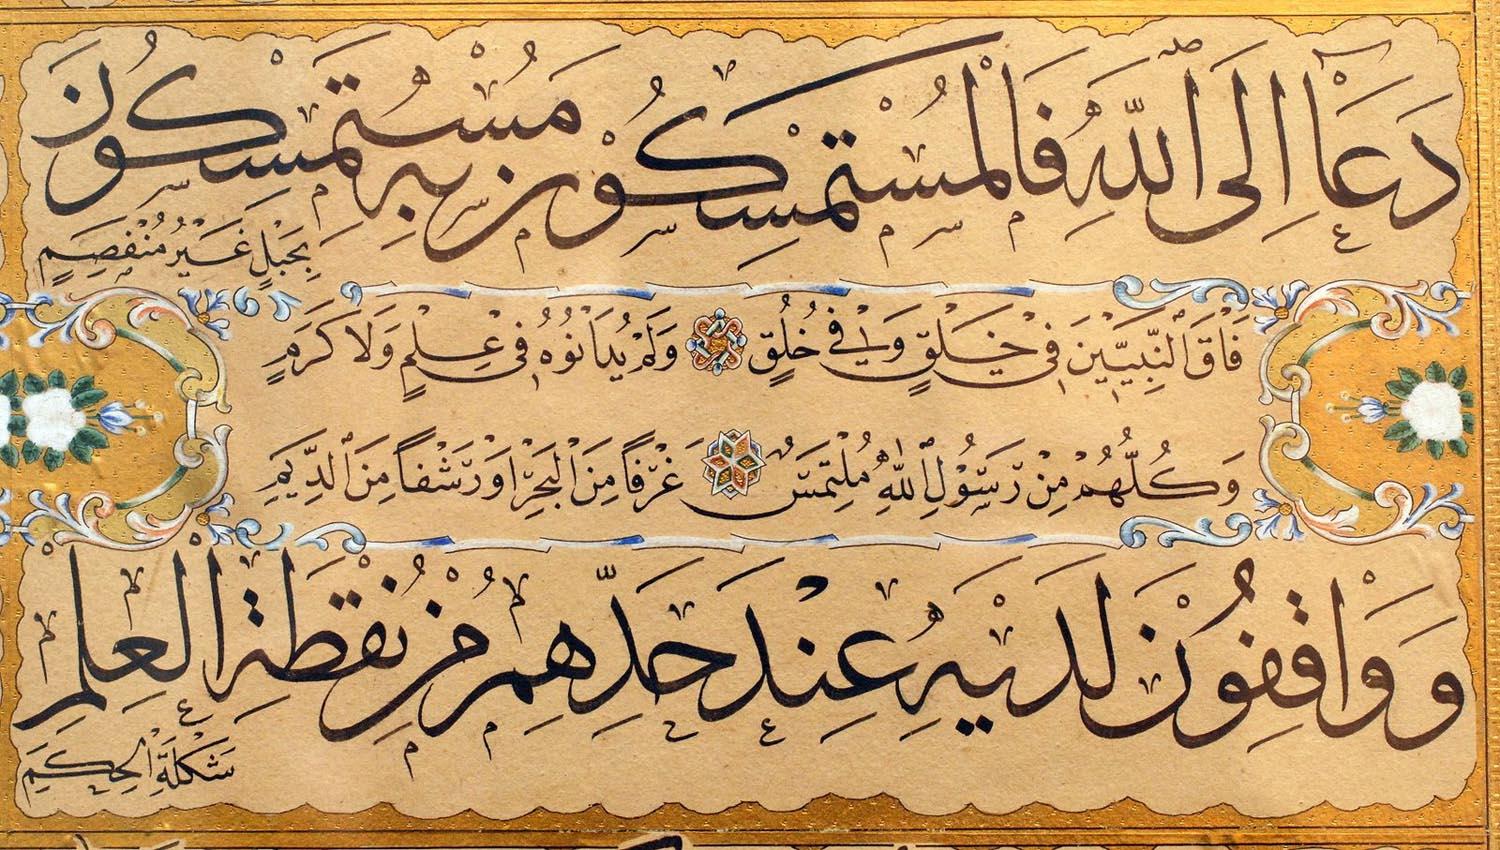 دَعَا اِلَى اللّٰهِ فَالْمُسْتَمْسِكُونَ بِهِ مُسْتَمْسِكُونَ
بِحَبْلٍ غَيْرِ مُنْفَصِمٍ
فَاقَ النَّبِيّ۪ينَ ف۪ي خَلْقٍ وَف۪ي خُلُقٍ وَلَمْ يُدَانُوهُ ف۪ي عِلْمٍ وَلَا كَرَمٍ
وَكُلُّهُمْ مِنْ رَسُولِ اللّٰهِ مُلْتَمِسٌ غَرْفًا مِنَ الْبَحْرِ اَوْ رَشْفًا مِنَ الدِّيَمِ
وَوَاقِفُونَ لَدَيْهِ عِنْدَ حَدِّهِمِ مِنْ نُقْطَةِ الْعِلْمِ
شَكْلَةِ الْحِكَمِ